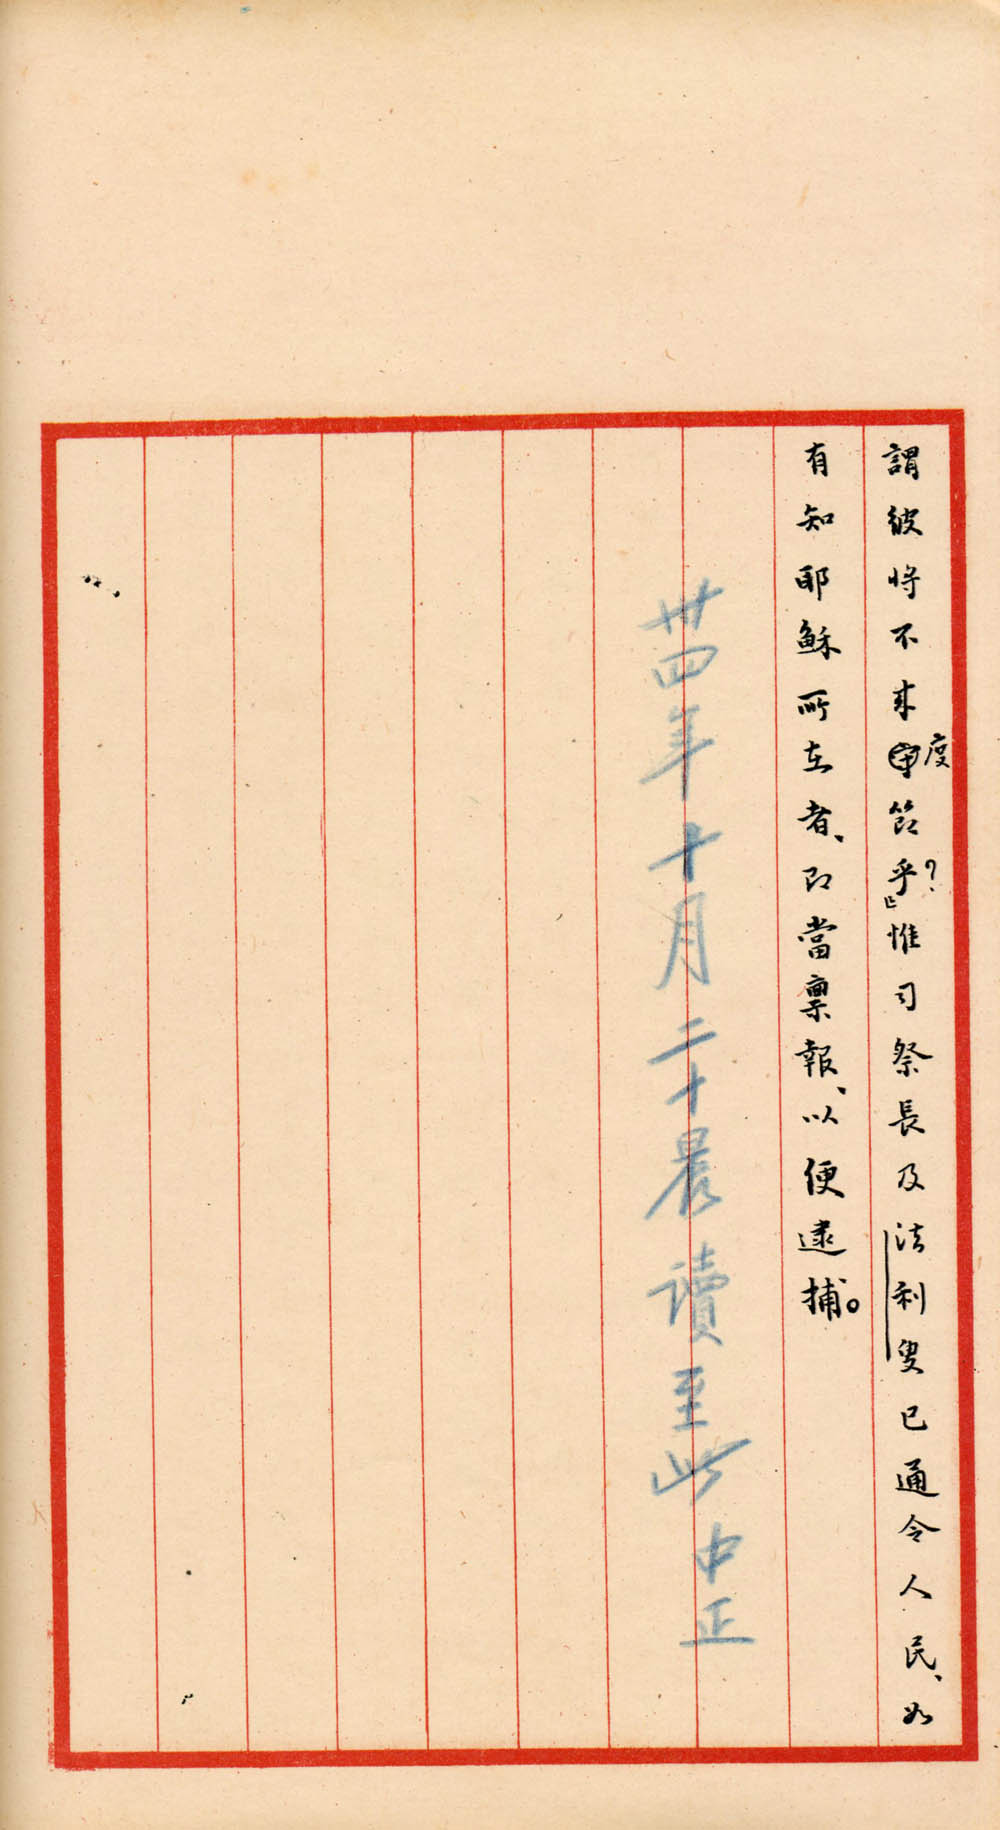 謂彼將不來度節乎？」惟司祭長及法利叟已通令人民、如
有知耶穌所在者、即當稟報、以便逮捕。
卅四年十月二十晨讀至此 中正